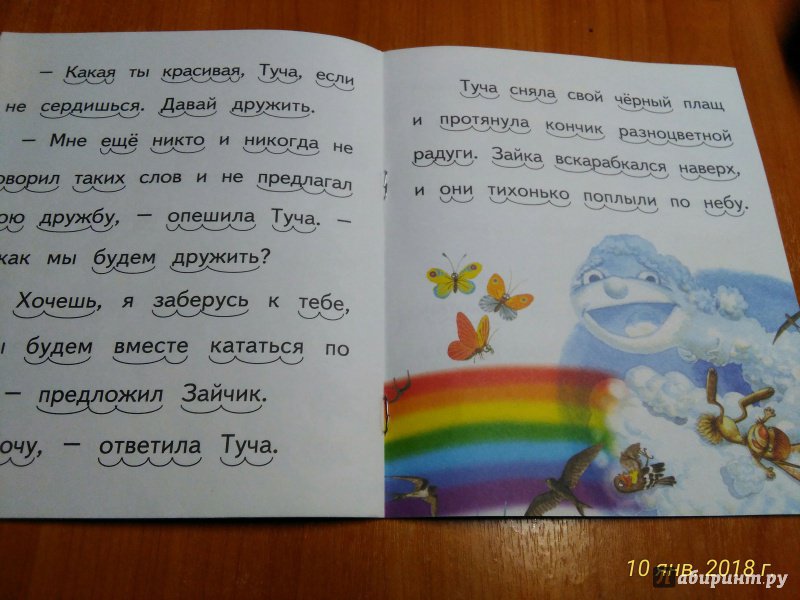 — Какая ты красивая, Туча, если
не сердишься. Давай дружить.
— Мне ещё никто и никогда не
оворил таких слов и не предлагал
ою дружбу, — опешила Туча. —
как мы будем дружить?
Хочешь, я заберусь к тебе,
ы будем вместе кататься по
— предложил Зайчик.
очу, — ответила Туча.
Туча сняла свой чёрный плащ
и протянула кончик разноцветной
радуги. Зайка вскарабкался наверх,
и они тихонько поплыли по небу.
10 янв. 2018 г.
Лабиринт.ру